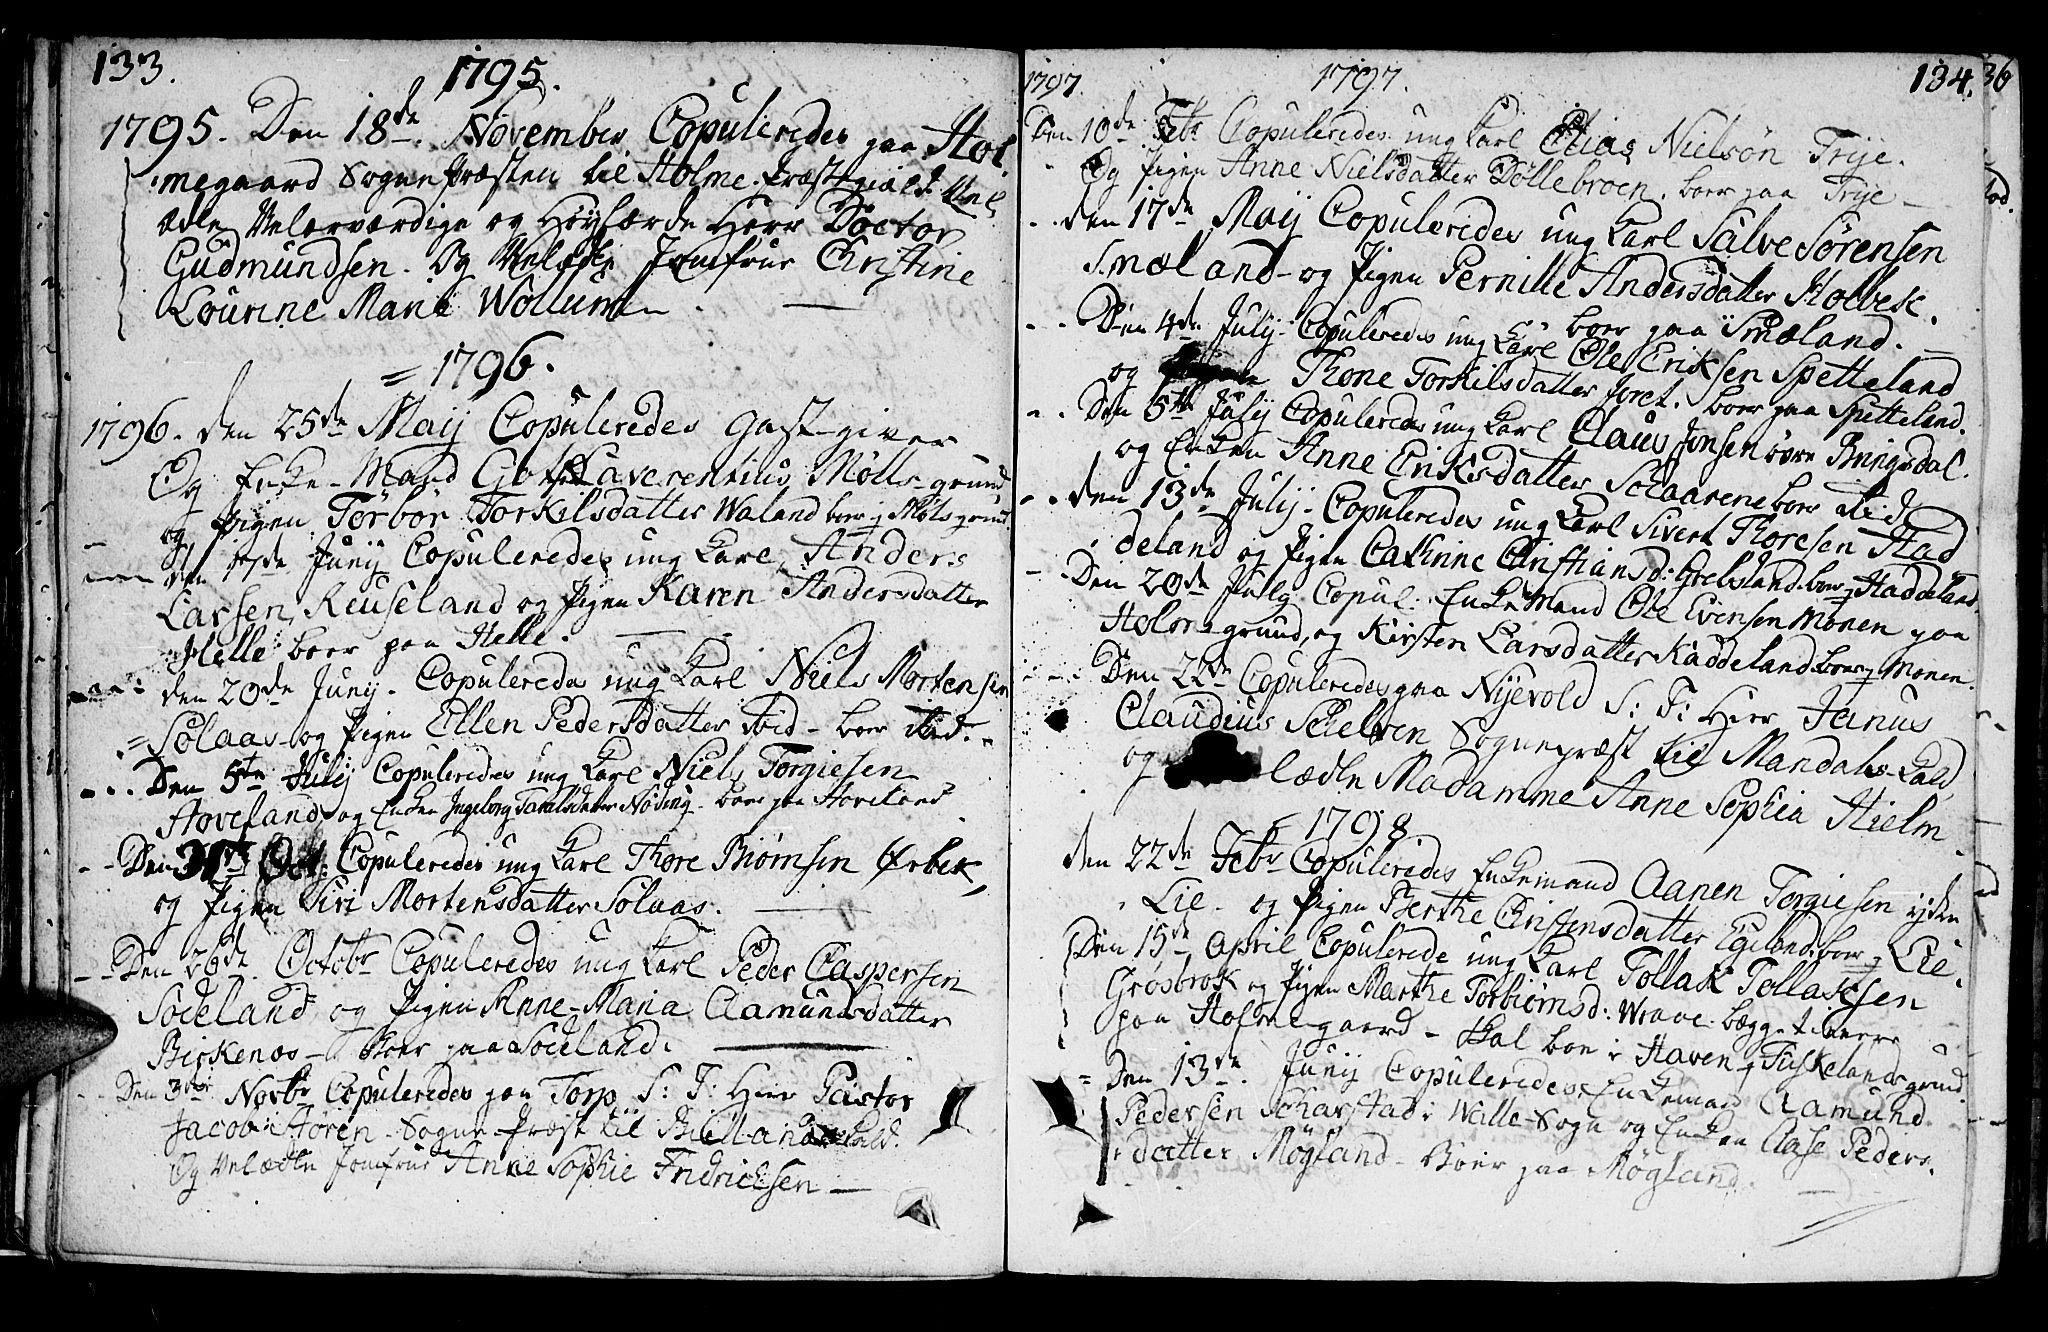 133.
1795.
1795. Den 18de November Copuleredes paa Hol
megaard Sogne Præsten til Holme Præstegield. Vel
ædle Velærværdige og Høylærde Herr Doctor
Gudmundsen. Og Velædle Jomfrue Christine
Lourine Marie Wollum
= 1796.
1796. den 25de Maij Copuleredes gastgiver
Og Enke-Mand Laverentius Mölls-grund
og Pigen Torbor Torkilsdatter Waland boer Mölsgrund.
den 17de Junij Copuleredes ung Karl Anders
Larsen, Reuseland og Pigen Karen Andersdatter
Helle boer paa Helle.
den 20de Junij. Copuleredes ung Karl Niels Mortensen
Solaas og Pigen Ellen Pedersdatter ibid - boer ibid.
Den 5te Julij Copuleredes ung Karl Niels Torgiesen
Hoveland og Enken Ingeborg Taraldsdatter Nöding boer paa Hoveland
Den Oct: Copuleredes ung Karl Thore Biörnsen Ørbek,
og Pigen Siri Mortensdatter Solaas.
Den 26de Octobr Copuleredes ung Karl Peder Caspersen
Sodeland og Pigen Anne-Maria Aamundsdatter
Birkenes - Boer paa Sodeland.
Den 3die Novbr Copuleredes paa Torp S: T: Herr Pastor
Jacob Hören Sogne-Præst til Biellands Kald.
Og Velædle Jomfrue Anne Sophie Fridrichsen
1797.
1797.
134.
36
Den 10de Febr Copuleredes ung Karl Elias Nielsön Trije.
Og Pigen Anne Nielsdatter Döllebroen. boer paa Trije
den 17de Maij Copuleredes ung Karl Salve Sörensen
Smæland og Pigen Pernille Andersdatter Holbek.
boer paa Smæland.
Den 4de Julij Copuleredes ung Karl Ole Eriksen Spetteland
og Thone Torkilsdatter Joret. boer paa Spetteland.
Den 5te Julij Copuleredes ung Karl Claus Jonsen övre Bringsdal.
og Enken Anne Eriksdatter Schaarene boer ibid
den 13de Julij Copuleredes ung Karl Sivert Thoresen Had
deland og Pigen Cathrine Christiansd: Grebsland boer Haddeland.
Den 20de Julij Copul. EnkeMand Ole Evensen Monen paa
Holm-grund, og Kirsten Larsdatter Kaddeland boer Monen.
Den 22de Copuleredes paa Nyevold S: T: Herr Janus
Claudius Schelven Sognepræst til Mandahls-Kald,
og lædle Madamme Anne Sophia Hielm
1798
den 22de Febr Copuleredes Enkemand Aanen Torgiesen ijden
Lie og Pigen Berthe Christensdatter Egeland. boer Lie.
Den 15de April Copulerede ung Karl Tollak Tollaksen
Grösbrok og Pigen Marthe Torbiörnsd: Wraae. begge tienere
paa Holmegaard - skal boe i Haven Tuskelands grund.
Den 13de Junij Copuleredes EnKemand Aamund
Pedersen Scharstad i Walle Sogn og Enken Aase Peders
datter Mögland - Boer paa Mögland.